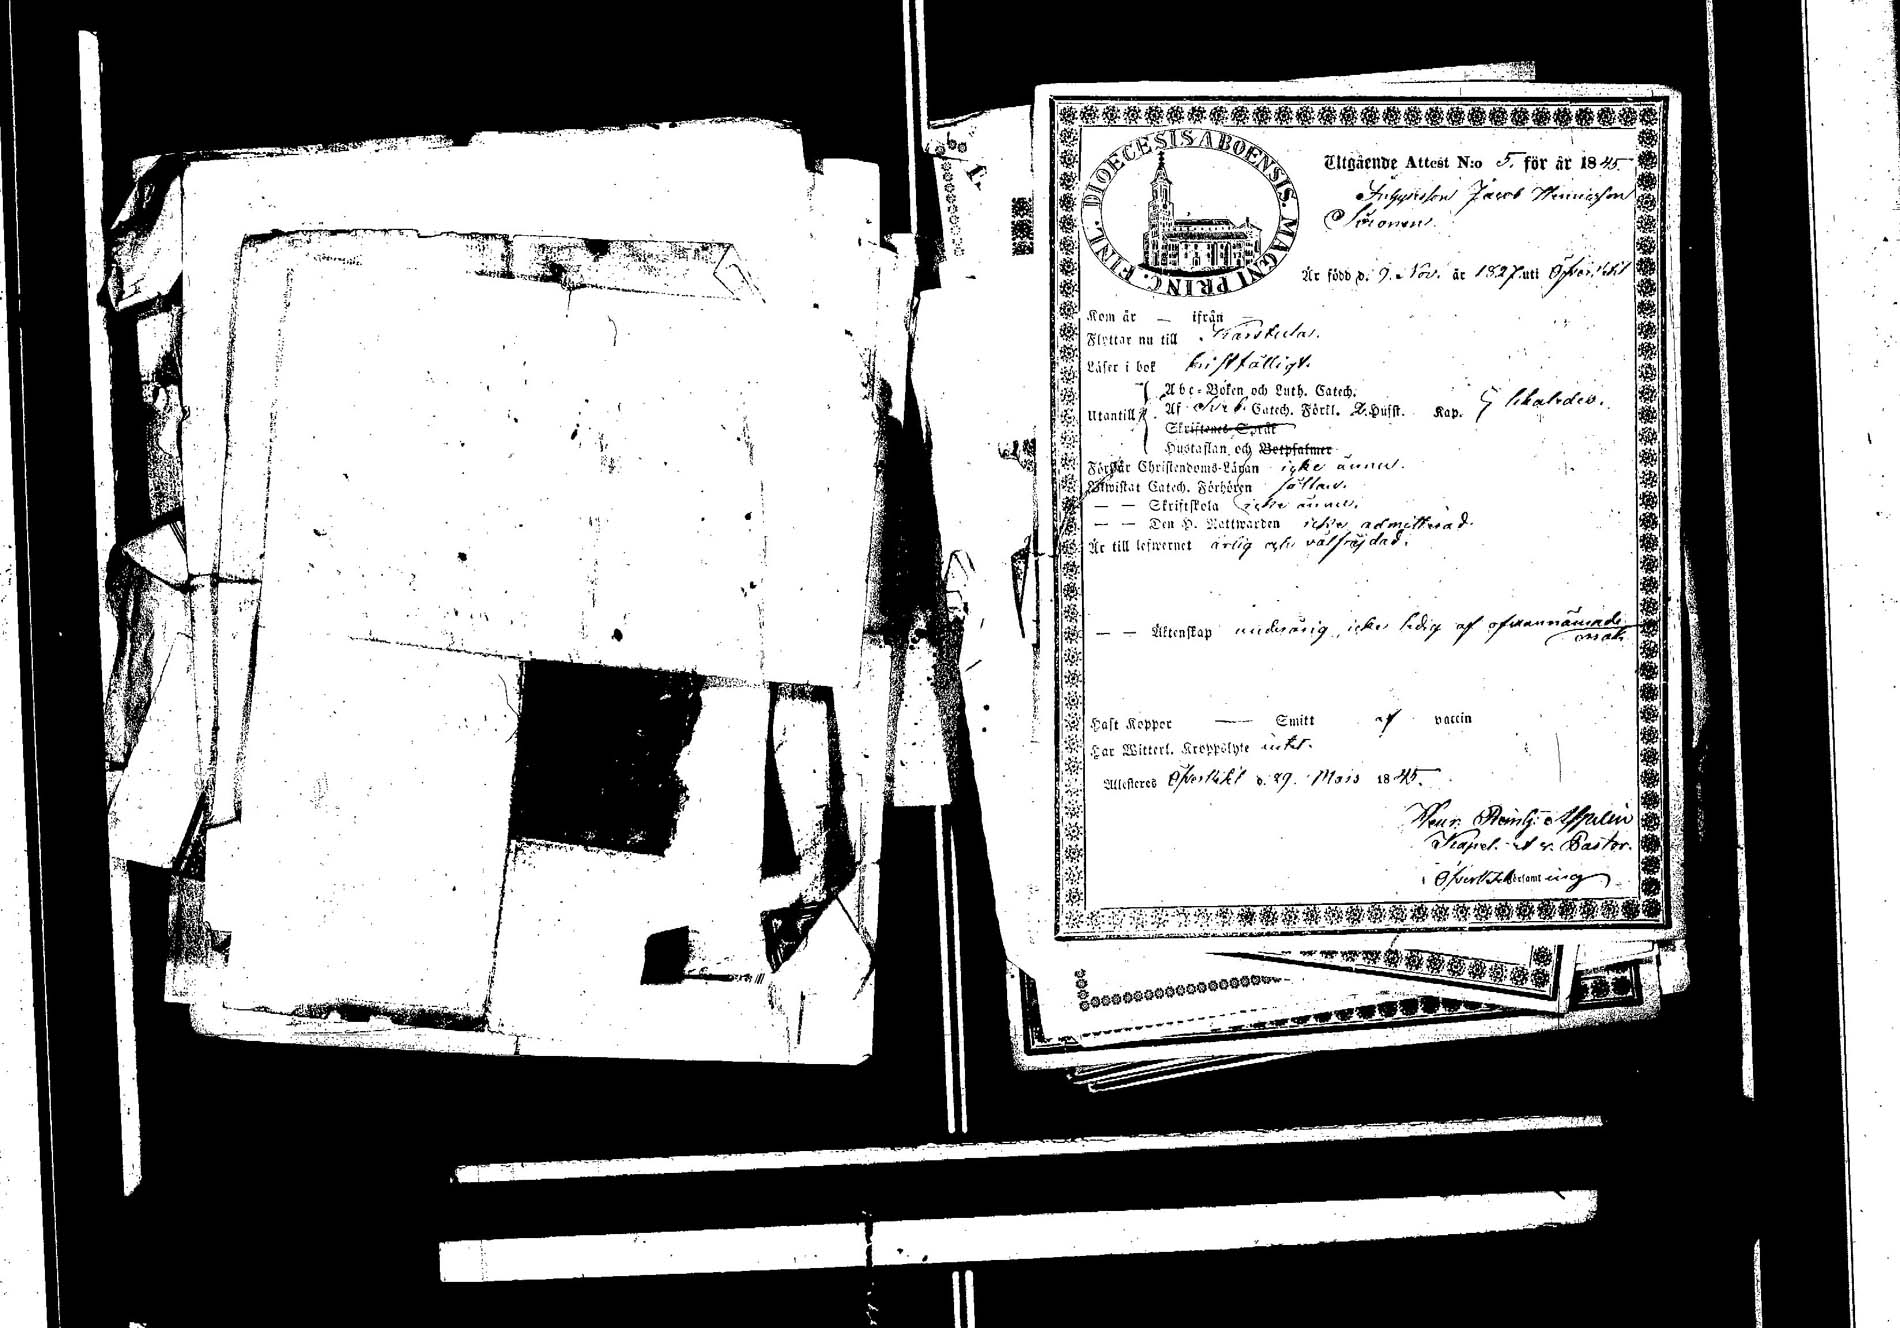 DIOECESIS ABOENSIS. MAGNI PRINC. FINL.
Utgående Attest N:o 5. för år 1845
Jacob Henricsson
Är född d. 9. Nov. år 1827. uti
Kom år — ifrån —
Flyttar nu till Karstula.
Läser i bok bristfälligt.
Abc-Boken och Luth. Catech.
Utantill Af Catech. Förkl. Kap.
Skriftenes Språk
Hustaflan och Botpsalmer
Förstår Christendoms-Läran icke ännu.
Bewistat Catech. Förhören sällan.
— — Skriftskola icke ännu.
— — Den H. Nattwarden icke admitterad.
Är till lefwernet ärlig och välfrejdad.
— — Äktenskap underårig, icke ledig af ofvannämnde
orsak
Haft Koppor — Smitt af vaccin
Har Witterl. Kroppslyte intet.
Attesteras d. 29. Mars 1845.
Henr.
Kapel. Pastor.